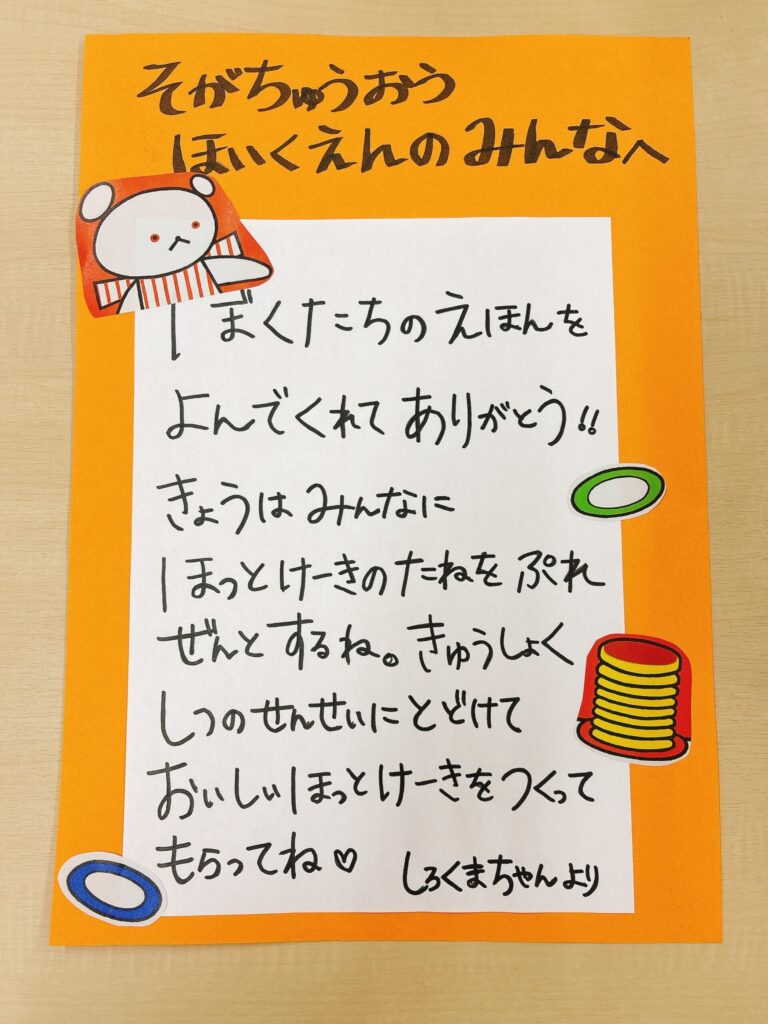 そがちゅうおう
ほいくえんのみんなへ
ぼくたちのえほんを
よんでくれて ありがとう!!
きょうは みんなに
ほっとけーきのたねを ぷれ
ぜんとするね。きゅうしょく
しつのせんせいにとどけて
おいしいほっとけーきをつくって
もらってね♡
しろくまちゃんより